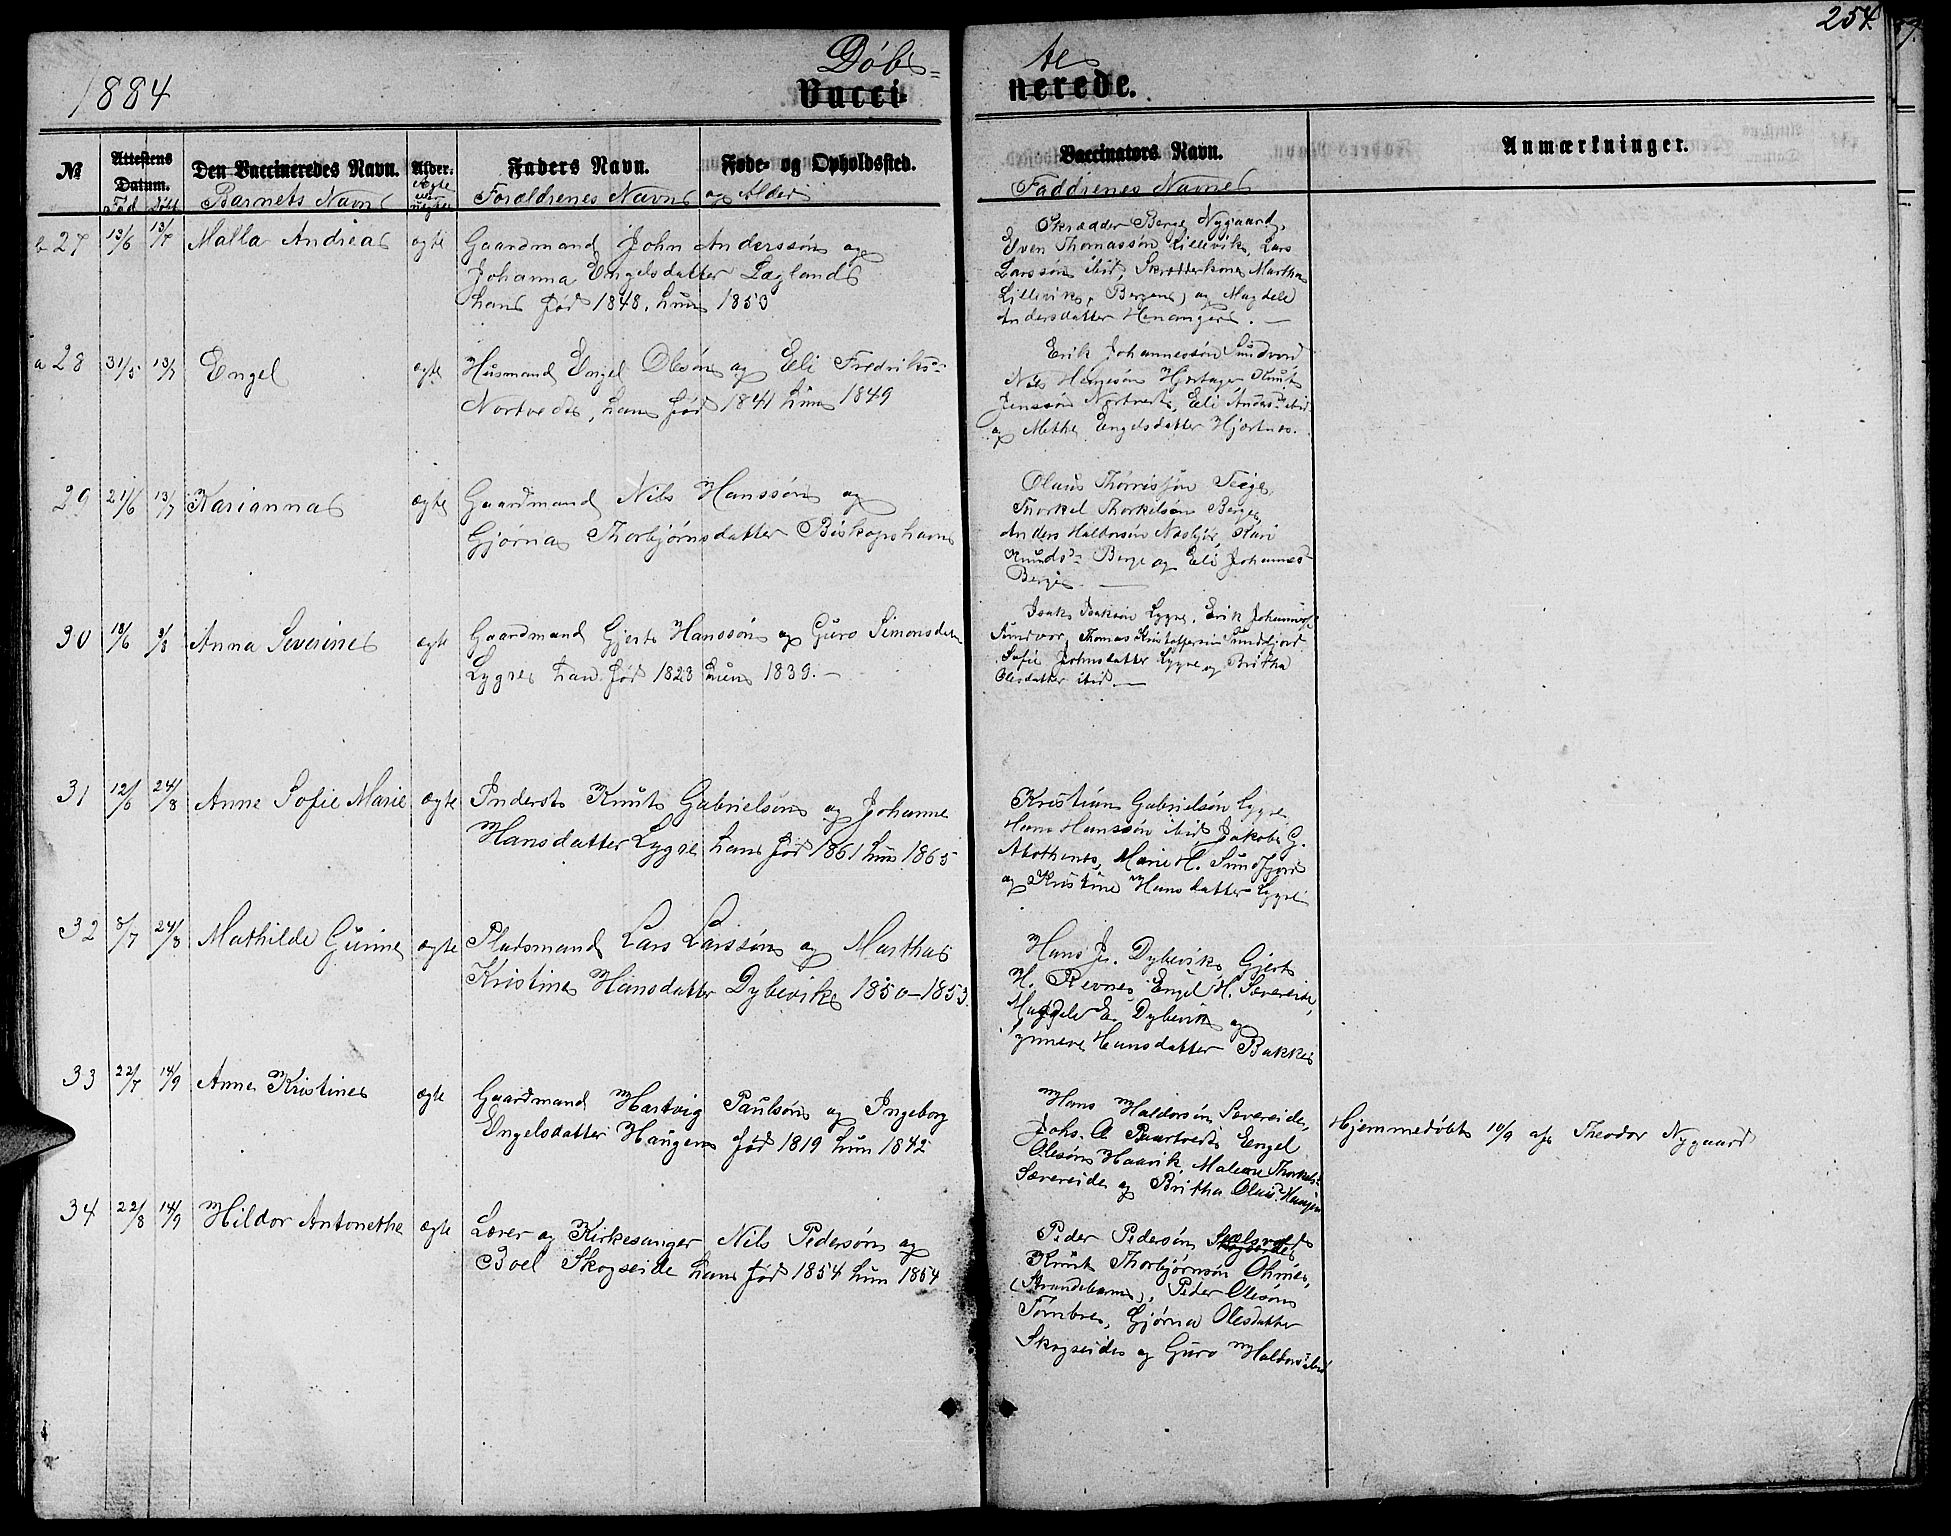 254
1884
Døbte
Vaccinerede.
№ Attestens Datum. Den Vaccineredes Navn. Alder. Faders Navn. Føde- og Opholdssted. Vaccinators Navn. Anmærkninger.
Fød Døbt Barnets Navn Ægte eller uægte Forældrenes Navn og Alder Faddrenes Navne
b 27 13/6 13/7 Malla Andrea ægte Gaardmand John Anderssøn og
Johanna Engelsdatter Lægland
han født 1848, hun 1853
Skrædder Berge Nygaard,
Even Thomassøn Lillevik, Lars
Larssøn ibid, Skrædderkone Martha
Lillevik, (Bergen) og Magdele
Andersdatter Henanger. —
a 28 31/5 13/7 Engel ægte Husmand Engel Olesøn og Eli Fredriksd.
Nortvedt, han født 1841 hun 1849
Erik Johannessøn Sundvor
Nils Hjortager Knut
Jenssøn Nortvedt, Eli Andersd. ibid
og Methe Engelsdatter Hjortnes.
29 21/6 13/7 Karianna ægte Gaardmand Nils Hanssøn og
Gjørna Thorbjørnsdatter Biskopshavn
Olaus Thorrissøn Teige,
Thorkel Thorkelsøn Berge
Anders Haldorsøn Kari
Knudsd. Berge og Eli Johannesd.
Berge —
30 18/6 3/8 Anna Severine ægte Gaardmand Gjert Hanssøn og Guro Simonsdatter
Lygre han født 1823 hun 1839. —
Isak Isaksøn Lygre, Erik Johanness.
Sundvor, Thomas Kristoffersøn Sundfjord
Sofie Johnsdatter Lygre og Britha
Olesdatter ibid —
31 12/6 24/8 Anne Sofie Marie ægte Inderst Knut Gabrielsøn og Johanne
Hansdatter Lygre han født 1861 hun 1865
Kristian Gabrielsøn Lygre
Hans Hanssøn ibid Jakob G.
Marie H. Sundfjord
og Kristine Hansdatter Lygre
32 8/7 24/8 Mathilde Gurine ægte Pladsmand Lars Larssøn og Martha
Kristine Hansdatter Dybevik 1850–1853.
Hans Js. Dybevik Gjert
H. Revne Engel H. Sævereide,
Magdele E. Dybevik og
Synneve Hansdatter Bakke
33 22/7 14/9 Anne Kristine ægte Gaardmand Hartvig Paulsøn og Ingeborg
Engelsdatter Haugen født 1819 hun 1842
Hans Haldorsøn Sævereide,
Johs. A. Engel
Olesøn Haavik, Malene Thorkelsd.
Sævereide og Britha Olausd. Haugen
Hjemmedøbt 10/9 af Theodor Nygaard
34 22/8 14/9 Hildor Antonethe ægte Lærer og Kirkesanger Nils Pedersøn og
Boel Skogseide han født 1854 hun 1854
Peder Pedersøn
Knut Thorbjørnsøn Ohmes,
(Strandebarm), Peder Olesøn
Tombre, Gjørna Olesdatter
Skogseide og Guro Haldorsd. ibid